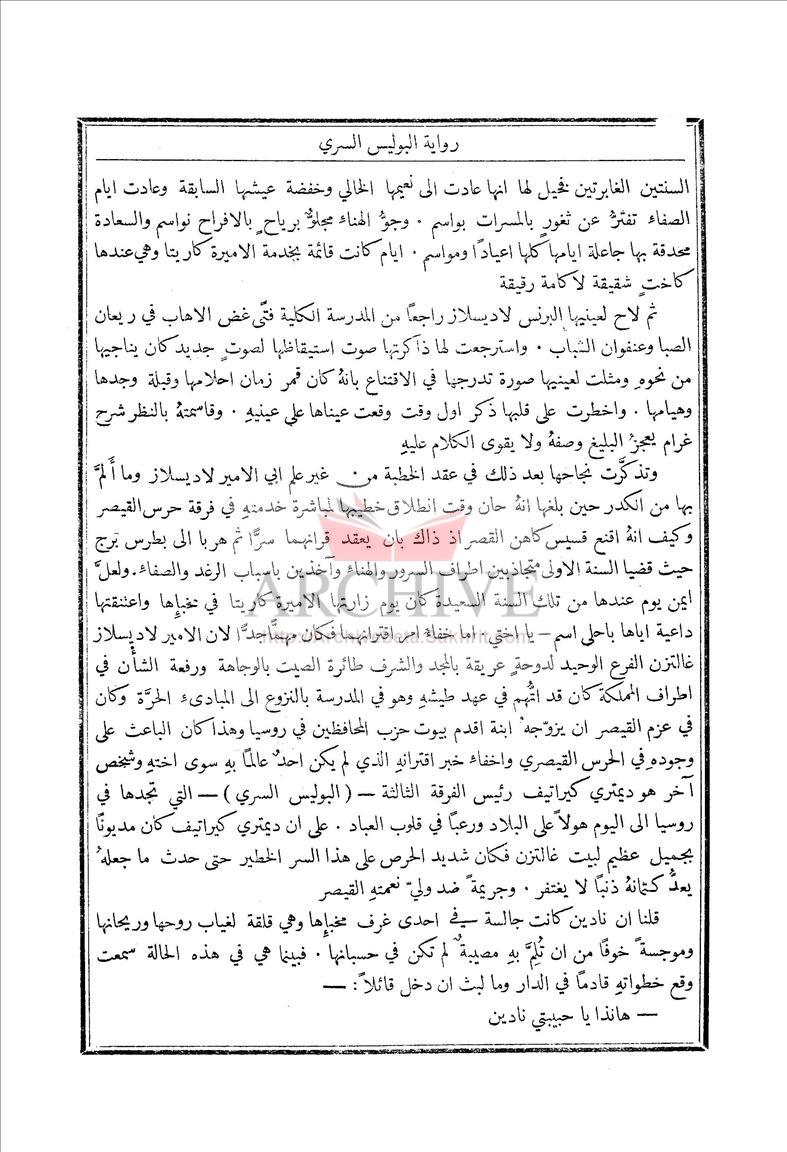 رواية البوليس السري
السنتين الغابرتين فخيل لها انها عادت الى نعيمها الخالي وخفضة عيشها السابقة وعادت ايام
الصفاء تفترُّ عن ثغورٍ بالمسرات بواسم . وجوُّ الهناء مجلوٌّ برياحٍ بالافراح نواسم والسعادة
محدقة بها جاعلة ايامها كلها اعيادًا ومواسم . ايام كانت قائمة بخدمة الاميرة كاريتا وهي عندها
كاختٍ شقيقة لا كامة رقيقة
ثم لاح لعينيها البرنس لاديسلاز راجعًا من المدرسة الكلية فتًى غض الاهاب في ريعان
الصبا وعنفوان الشباب . واسترجعت لها ذاكرتها صوت استيقاظها لصوتٍ جديد كان يناجيها
من نحوهِ ومثلت لعينيها صورة تدرجها في الاقتناع بانهُ كان قمر زمان احلامها وقبلة وجدها
وهيامها . واخطرت على قلبها ذكر اول وقت وقعت عيناها على عينيهِ . وقاسمتهُ بالنظر شرح
غرام يعجزُ البليغ وصفهُ ولا يقوى الكلام عليهِ
وتذكَّرت نجاحها بعد ذلك في عقد الخطبة من غير علم ابي الامير لاديسلاز وما أَلمَّ
بها من الكدر حين بلغها انهُ حان وقت انطلاق خطيبها لمباشرة خدمتهِ في فرقة حرس القيصر
وكيف انهُ اقنع قسيس كاهن القصر اذ ذاك بان يعقد قرانهما سرًّا ثم هربا الى بطرس برج
حيث قضيا السنة الاولى متجاذبين اطراف السرور والهناء وآخذين باسباب الرغد والصفاء. ولعلَّ
ايمن يوم عندها من تلك السنة السعيدة كان يوم زارتها الاميرة كاريتا في مخباها واعتنقتها
داعية اياها باحلى اسم – يا اختي . اما خفاء امر اقترانهما فكان مهمًّا جدًّا لان الامير لاديسلاز
غالتزن الفرع الوحيد لدوحةٍ عريقة بالمجد والشرف طائرة الصيت بالوجاهة ورفعة الشأن في
اطراف المملكة كان قد اتُّهم في عهد طيشهِ وهو في المدرسة بالنزوع الى المبادىء الحرَّة وكان
في عزم القيصر ان يزوّجهُ ابنة اقدم بيوت حزب المحافظين في روسيا وهذا كان الباعث على
وجودهِ في الحرس القيصري واخفاء خبر اقترانهِ الذي لم يكن احدٌ عالمًا بهِ سوى اختهِ وشخص
آخر هو ديمتري كيراتيف رئيس الفرقة الثالثة – (البوليس السري) – التي تجدها في
روسيا الى اليوم هولاً على البلاد ورعبًا في قلوب العباد . على ان ديمتري كيراتيف كان مديونًا
بجميل عظيم لبيت غالتزن فكان شديد الحرص على هذا السر الخطير حتى حدث ما جعلهُ
يعدُّ كتمانهُ ذنبًا لا يغتفر . وجريمةً ضد وليّ نعمتهِ القيصر
قلنا ان نادين كانت جالسة في احدى غرف مخباها وهي قلقة لغياب روحها وريحانها
وموجسةً خوفًا من ان تُلمَّ بهِ مصيبةٌ لم تكن في حسبانها . فبينما هي في هذه الحالة سمعت
وقع خطواتهِ قادمًا في الدار وما لبث ان دخل قائلاً : –
– هانذا يا حبيبتي نادين
ARCHIVE